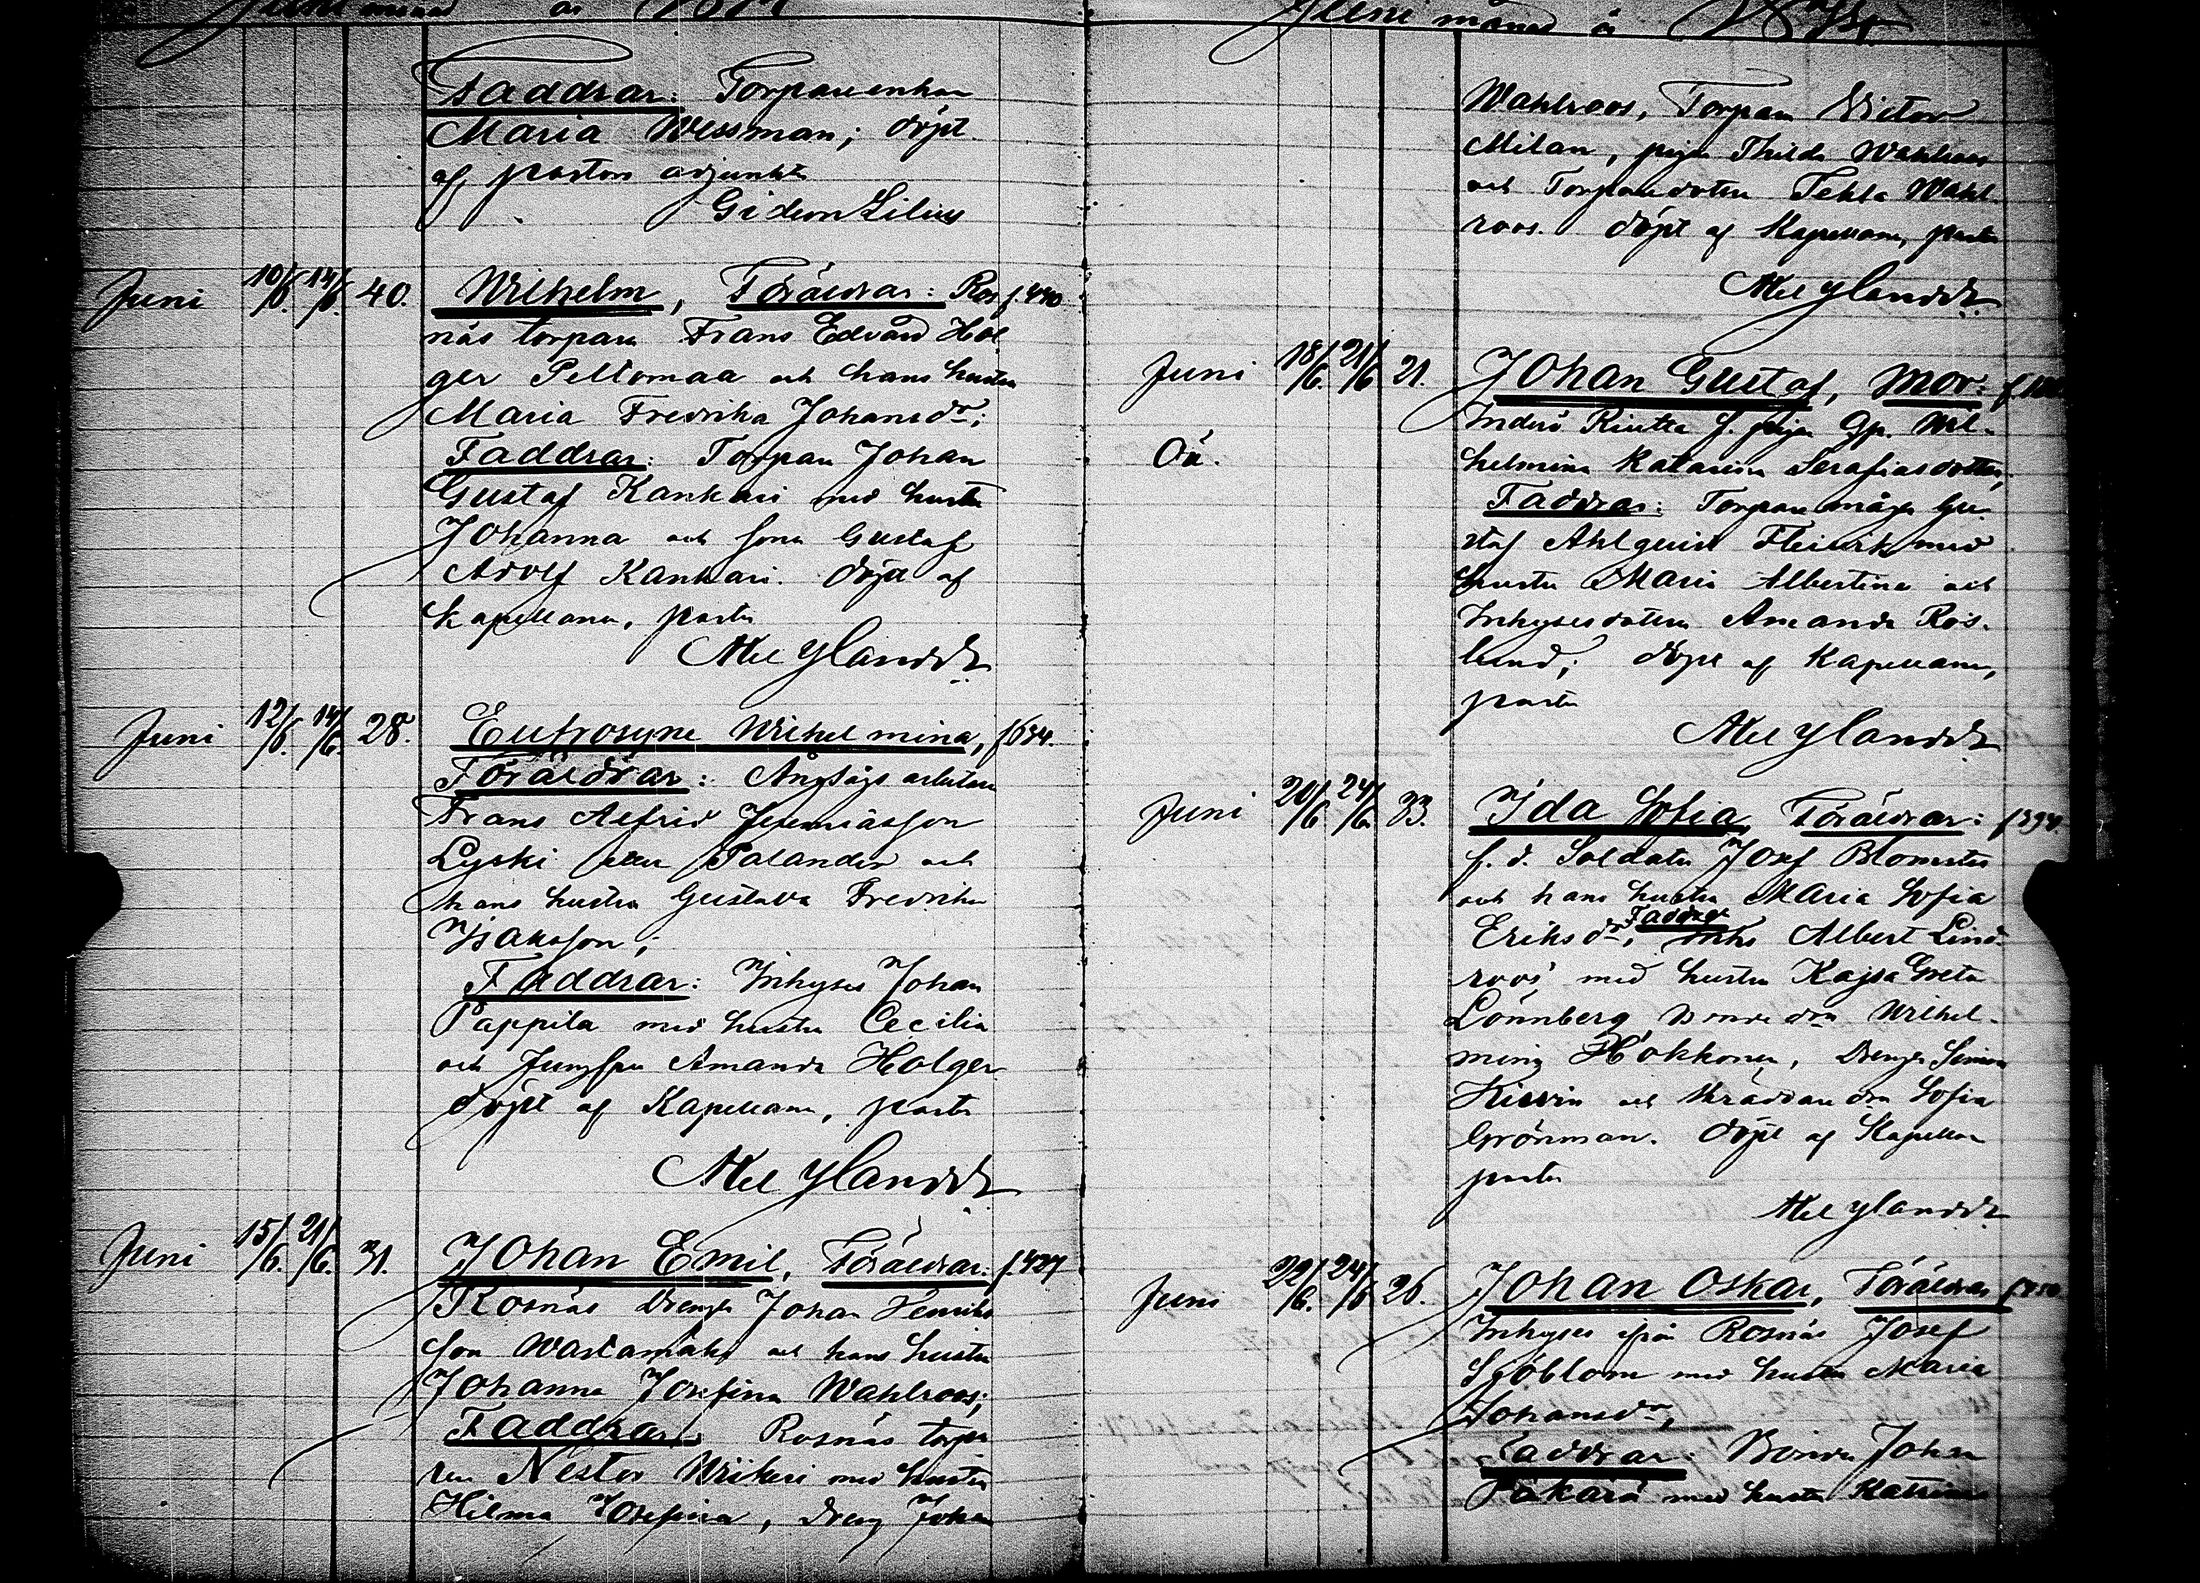 Juni månad år
Faddrar: Torparenkan
Maria Wessman; döpt
af pastors adjunkten
Gideon Lilius
Juni 10/6. 14/6. 40. Wilhelm, Föräldrar: Ros f. 440
näs torparn Frans Edvard Hol
ger Peltomaa och hans hustru
Maria Fredrika Johansdr;
Faddrar: Torparn Johan
Gustaf Kankari med hustru
Johanna och sonen Gustaf
Adolf Kankari. döpt af
kapellanen, pastor
Axel Ylander
Juni 12/6. 14/6. 28. Eufrosyne Wilhelmina, f 634.
Föräldrar: Ångsågs arbetaren
Frans Alfrid Jeremiasson
Lyski eller Palander och
hans hustru Gustava Fredrika
Isaksson;
Faddrar: Inhyses Johan
Pappila med hustru Cecilia
och Jungfru Amanda Holger
döpt af Kapellanen, pastor
Axel Ylander
Juni 15/6. 21/6. 31. Johan Emil, Föräldrar: f. 427
Rosnäs Drengen Johan Henriks
son Wastamäki och hans hustru
Johanna Josefina Wahlroos;
Faddrar: Rosnäs torpa
ren Nestor Wikeri med hustru
Hilma Josefina, dreng Johan
Juni månad år
Wahlroos, Torparn Victor
Milan, pigan Thilda Wahlroos
och Torparedottern Tekla Wahl
roos. döpt af Kapellanen, pastor
Axel Ylander
Juni 18/6. 21/6 21. Johan Gustaf, Mor: f.
Oä. Inderö Riutta f. pigan Gp. Wil-
helmina Katarina Serafiasdotter,
Faddrar: Torparemågen Gu-
staf Ahlqvist Fleivik med
hustru Maria Albertina och
Inhysesdottern Amanda Ros-
lund; döpt af Kapellanen,
pastor
Axel Ylander
Juni 20/6 24/6. 33. Ida Sofia, Föräldrar: f 394.
f. d. Soldaten Josef Blomster
och hans hustru Maria Sofia
Eriksdr; Faddrar Inhs Albert Lind-
roos med hustru Kajsa Greta
Lönnberg, bondedrn Wilhel-
mina Hokkonen, Drengen Simon
Kiwin och Skräddaredrn Sofia
Grönman. döpt af Kapellan
pastor
Axel Ylander
Juni 22/6. 24/6 26. Johan Oskar, Föräldrar
Inhyses från Rosnäs Josef
Sjöblom med hustru Maria
Johansdr,
Faddrar: Bonden Johan
Päkärä med hustru Katrina